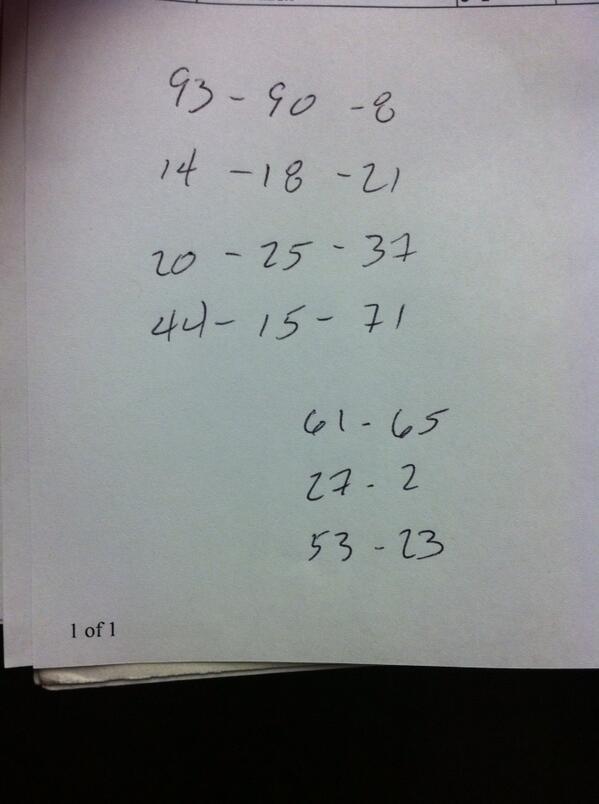 93 - 90 - 8
14 - 18 - 21
20 - 25 - 37
44 - 15 - 71
61 - 65
27 - 2
53 - 23
1 of 1